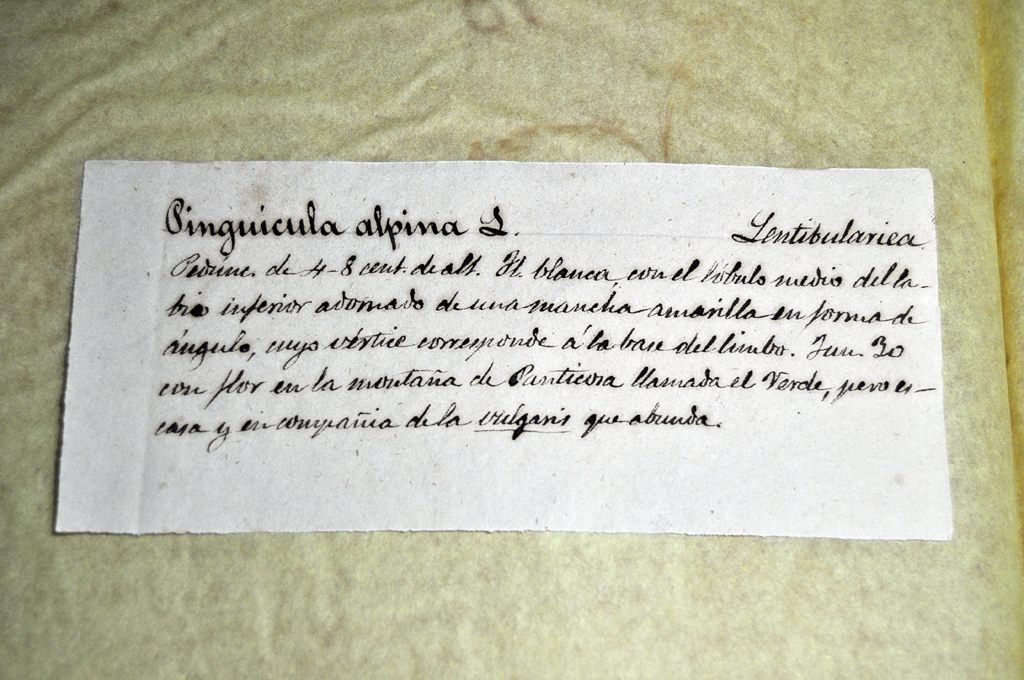 Pinguicula alpina L. Lentibulariea
Pedúnc. de 4-8 cent. de alt. Fl. blanca, con el lóbulo medio del la-
bio inferior adornado de una mancha amarilla en forma de
ángulo, cuyo vértice corresponde á la base del limbo. Jun. 30
con flor en la montaña de Panticosa llamada el Verde, pero es-
casa y en compañia de la vulgaris que abunda.